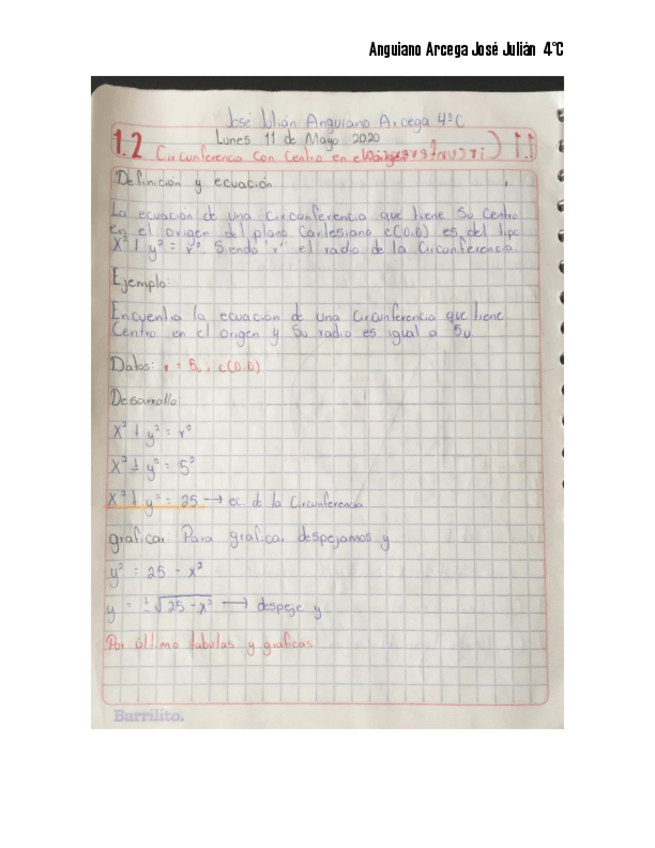 Anguiano Arcega José Julián 4°C
José Julián Anguiano Arcega 4°C
Lunes 11 de Mayo 2020
1.2 Circunferencia con Centro en el
Definición y ecuación
La ecuación de una circunferencia que tiene su centro
en el origen del plano Cartesiano c(0,0) es del tipo
x² + y² = r². Siendo "r" el radio de la Circunferencia.
Ejemplo:
Encuentra la ecuación de una Circunferencia que tiene
Centro en el origen y su radio es igual a 5u
Datos: r = 5u ; c(0,0)
Desarrollo:
x² + y² = r²
x² + y² = 5²
x² + y² = 25 → ec. de la Circunferencia
graficar: Para graficar despejamos y
y² = 25 - x²
y = ±√25 - x² → despeje y
Por último tabulas y graficas
Barrilito.